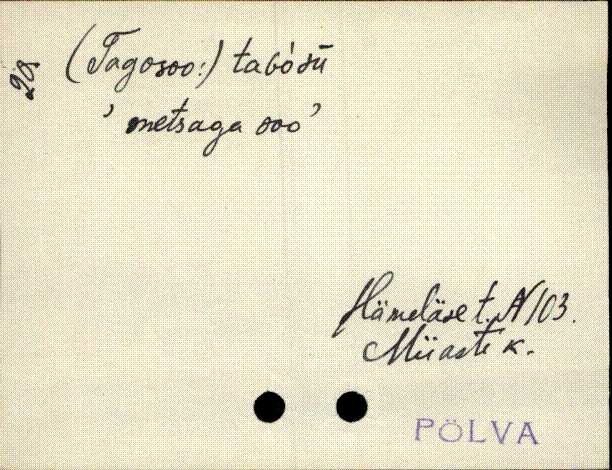 29
(Tagosoo:) tagósü
' metsaga soo '
Hämeläse t. N 103.
Miiaste k.
PÕLVA